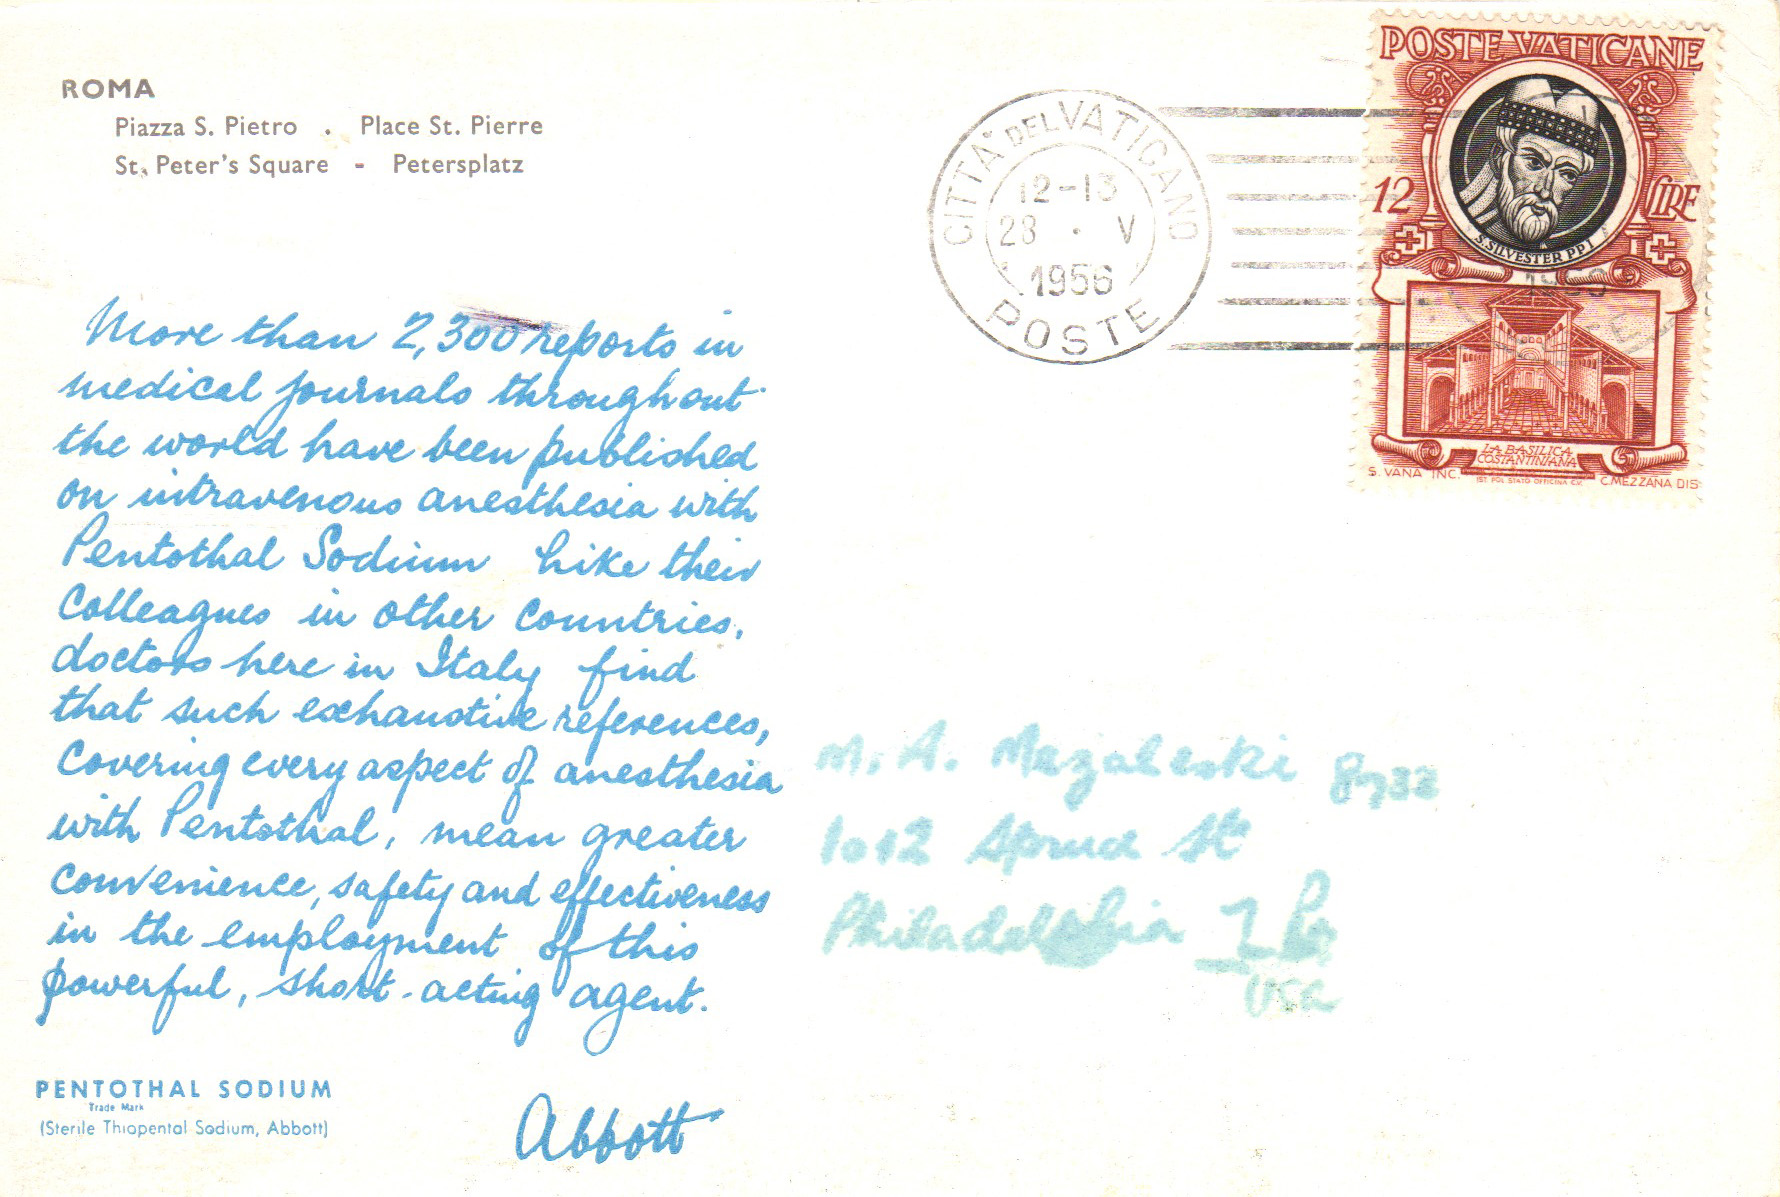 ROMA
Piazza S. Pietro . Place St. Pierre
St. Peter's Square - Petersplatz
CITTÀ DEL VATICANO
12-13
28 · V
1956
POSTE
POSTE VATICANE
12 LIRE
S. SILVESTER PP I
LA BASILICA
COSTANTINIANA
S. VANA INC. IST. POL. STATO OFFICINA C.V. C. MEZZANA DIS.
More than 2,300 reports in
medical journals throughout
the world have been published
on intravenous anesthesia with
Pentothal Sodium Like their
Colleagues in other countries,
doctors here in Italy find
that such exhaustive references,
Covering every aspect of anesthesia
with Pentothal, mean greater
convenience, safety and effectiveness
in the employment of this
powerful, short-acting agent.
Abbott
PENTOTHAL SODIUM
Trade Mark
(Sterile Thiopental Sodium, Abbott)
M. A. 8732
1012 St
Philadelphia 7 Pa
USA